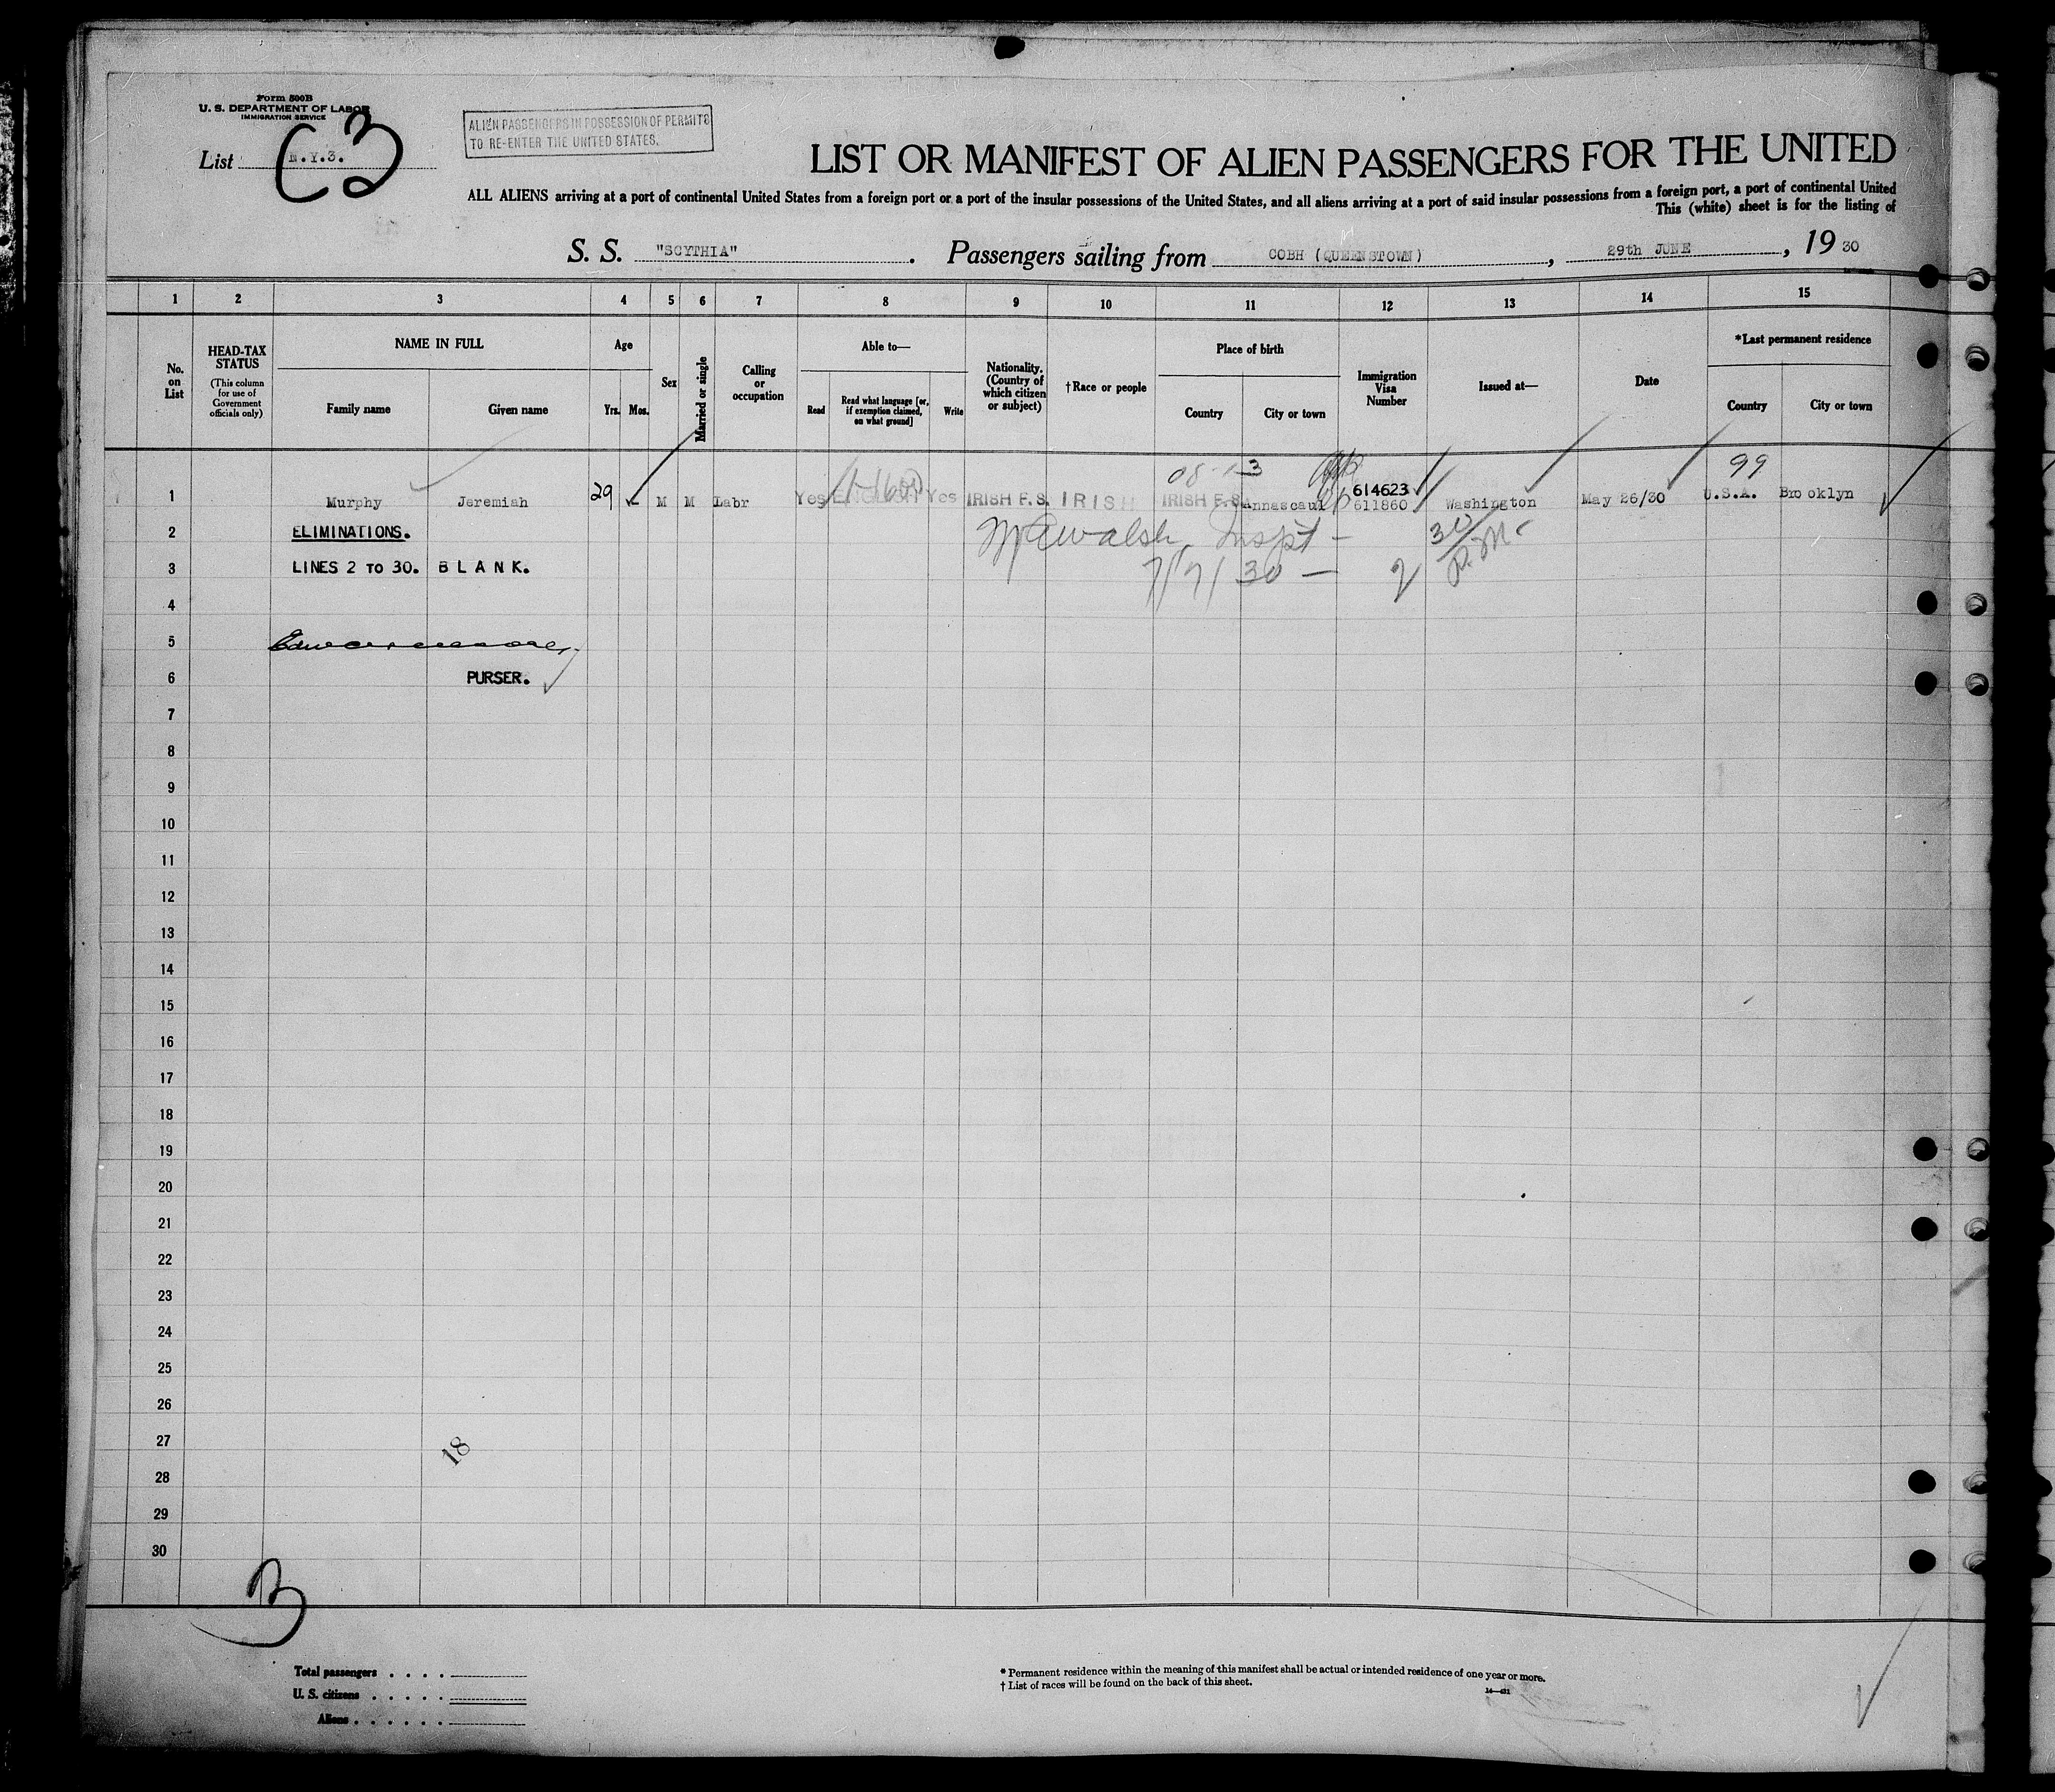 Form 500B
U. S. DEPARTMENT OF LABOR
IMMIGRATION SERVICE
List N.Y.3.
C3
ALIEN PASSENGERS IN POSSESSION OF PERMITS
TO RE-ENTER THE UNITED STATES.
LIST OR MANIFEST OF ALIEN PASSENGERS FOR THE UNITED
ALL ALIENS arriving at a port of continental United States from a foreign port or a port of the insular possessions of the United States, and all aliens arriving at a port of said insular possessions from a foreign port, a port of continental United
This (white) sheet is for the listing of
S. S. "SCYTHIA" . Passengers sailing from COBH (QUEENSTOWN) , 29th JUNE , 19 30
1 2 3 4 5 6 7 8 9 10 11 12 13 14 15
No. on List
HEAD-TAX STATUS
(This column for use of Government officials only)
NAME IN FULL
Family name Given name
Age
Yrs. Mos.
Sex
Married or single
Calling or occupation
Able to—
Read
Read what language [or, if exemption claimed, on what ground]
Write
Nationality. (Country of which citizen or subject)
†Race or people
Place of birth
Country City or town
Immigration Visa Number
Issued at—
Date
*Last permanent residence
Country City or town
3 99
614623
1 Murphy Jeremiah 29 - M M Labr Yes ENGLISH Yes IRISH F.S. IRISH IRISH F.S. Annascaul 611860 Washington May 26/30 U.S.A. Brooklyn
2 ELIMINATIONS. Walsh Inspt - 30
3 LINES 2 TO 30. BLANK. 7/7/30 — P.M.
4
5
6 PURSER.
7
8
9
10
11
12
13
14
15
16
17
18
19
20
21
22
23
24
25
26
27
18
28
29
30
3
Total passengers . . . .
U. S. citizens . . . . .
Aliens . . . . . .
* Permanent residence within the meaning of this manifest shall be actual or intended residence of one year or more.
† List of races will be found on the back of this sheet.